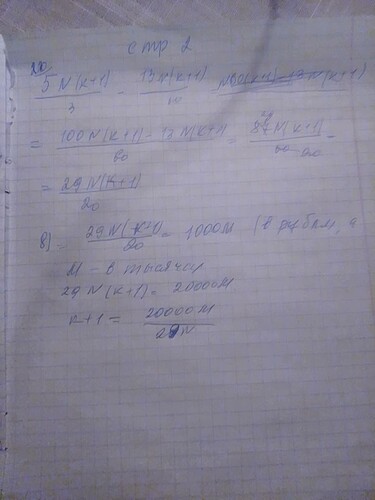 стр 2
5N(k+1)/3 - 13N(k+1)/60
= 100N(k+1) - 13N(k+1)/60 = 87N(k+1)/60 =
= 29N(k+1)/20
8) = 29N(k+1)/20 = 1000M (в рублях, а
M - в тысячах
29N(k+1) = 20000M
k+1 = 20000M/29N